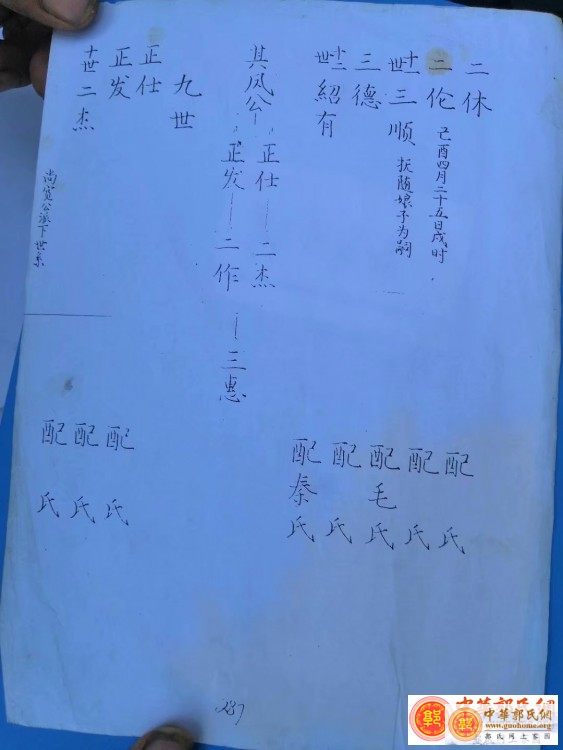 二休 配 氏
二伦 己酉四月二十五日戌时 配 氏
十一世 三顺 抚随娘子为嗣 配毛氏
三德 配 氏
十二世 紹有 配秦氏
其凤公 正仕 二杰
正发 二作 三惠
九世
正仕 配 氏
正发 配 氏
十世 二杰 配 氏
尚宽公派下世系
237
中華郭氏網
www.guohome.org
郭氏网上家园